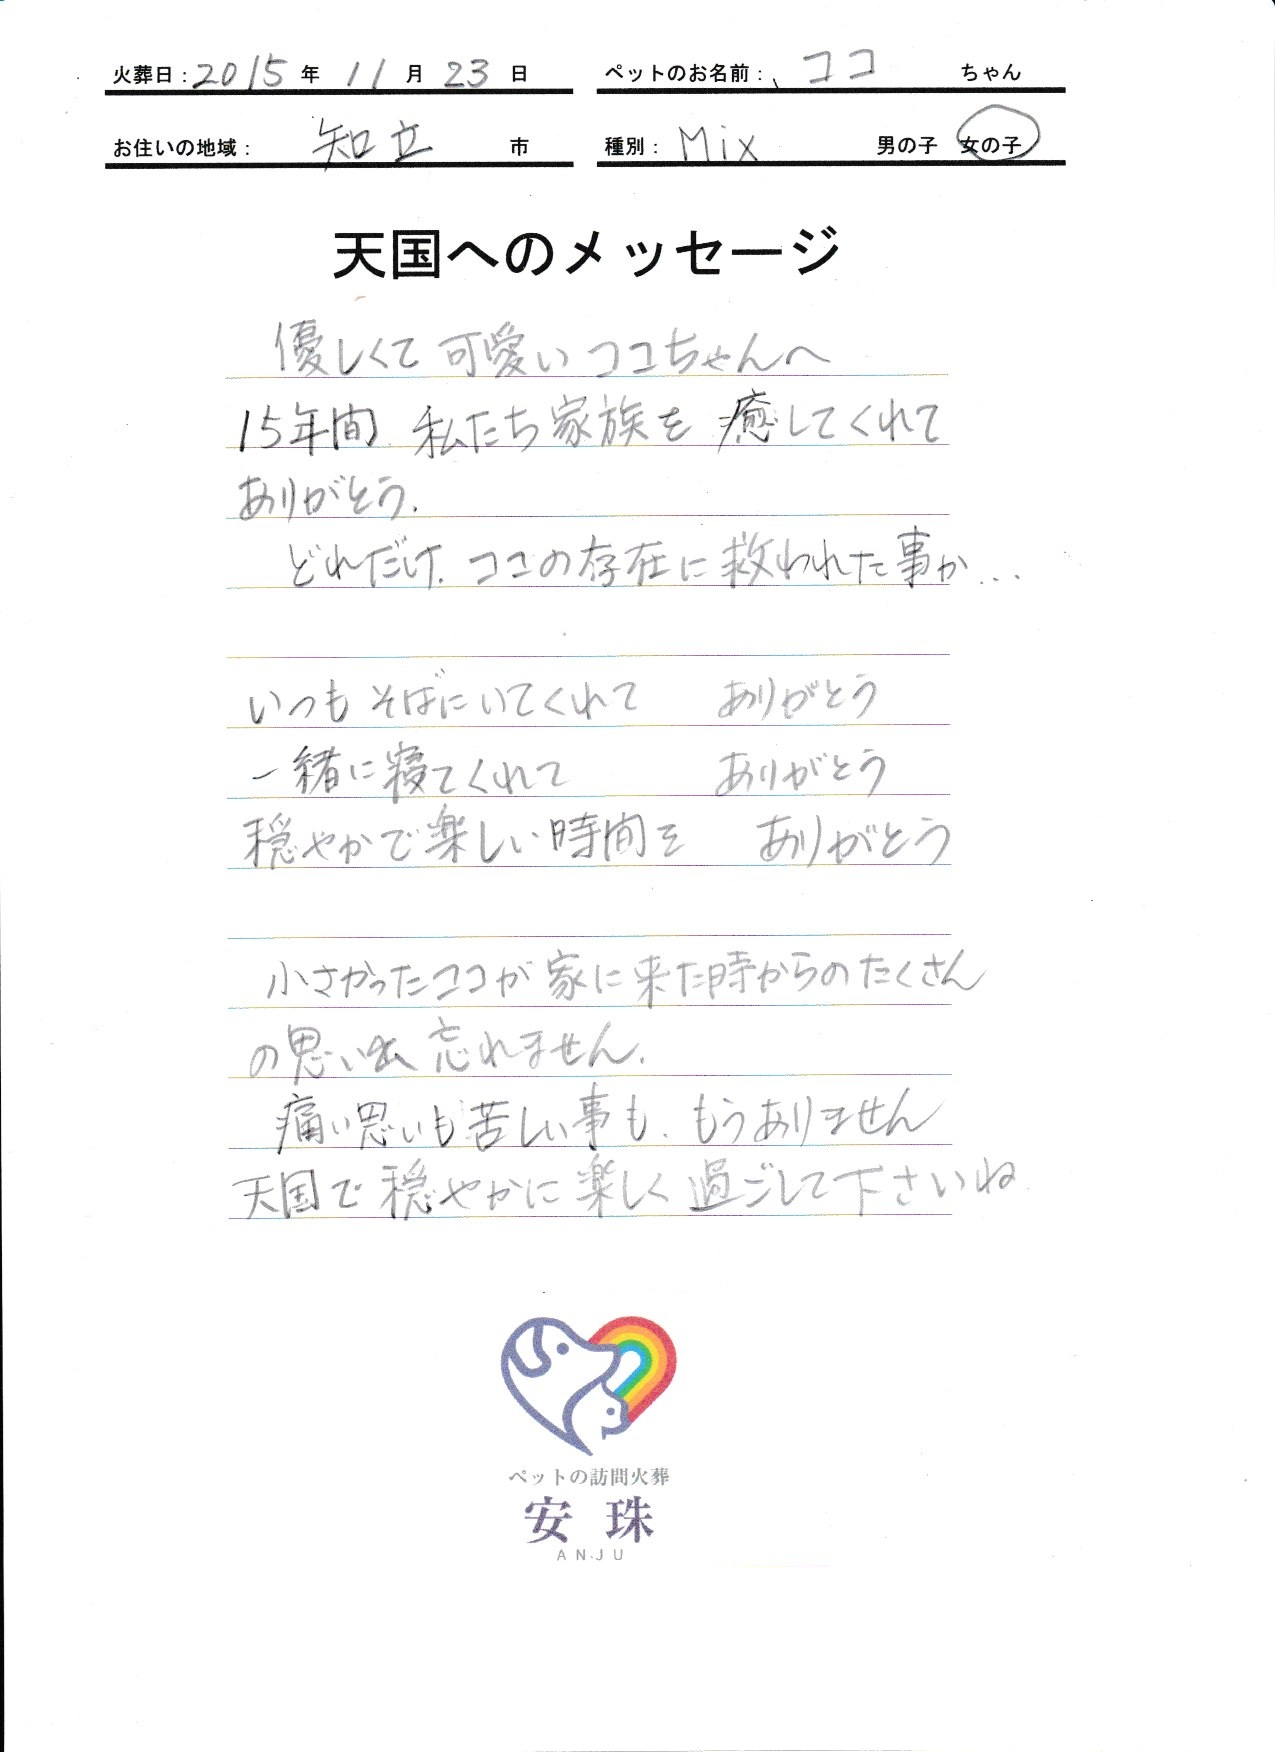 火葬日：2015年 11月 23日
ペットのお名前：ココ ちゃん
お住いの地域： 知立 市
種別： Mix 男の子 女の子
天国へのメッセージ
優しくて可愛いココちゃんへ
15年間 私たち家族を癒してくれて
ありがとう.
どれだけ. ココの存在に救われた事か...
いつもそばにいてくれて ありがとう
一緒に寝てくれて ありがとう
穏やかで楽しい時間を ありがとう
小さかったココが家に来た時からのたくさん
の思い出 忘れません.
痛い思いも苦しい事も. もうありません
天国で穏やかに楽しく過ごして下さいね
ペットの訪問火葬
安珠
ANJU